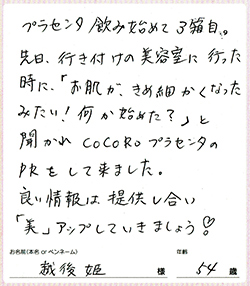 プラセンタ飲み始めて3箱目。
先日、行き付けの美容室に行った
時に、「お肌が、きめ細かくなった
みたい!何か始めた?」と
聞かれCOCOROプラセンタの
PRをして来ました。
良い情報は提供し合い
「美」アップしていきましょう♡
お名前(本名 or ペンネーム) 年齢
越後姫 様 54 歳